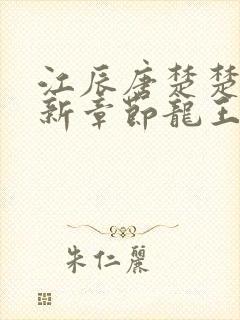 江辰唐楚楚
新章節龍王
朱仁麗